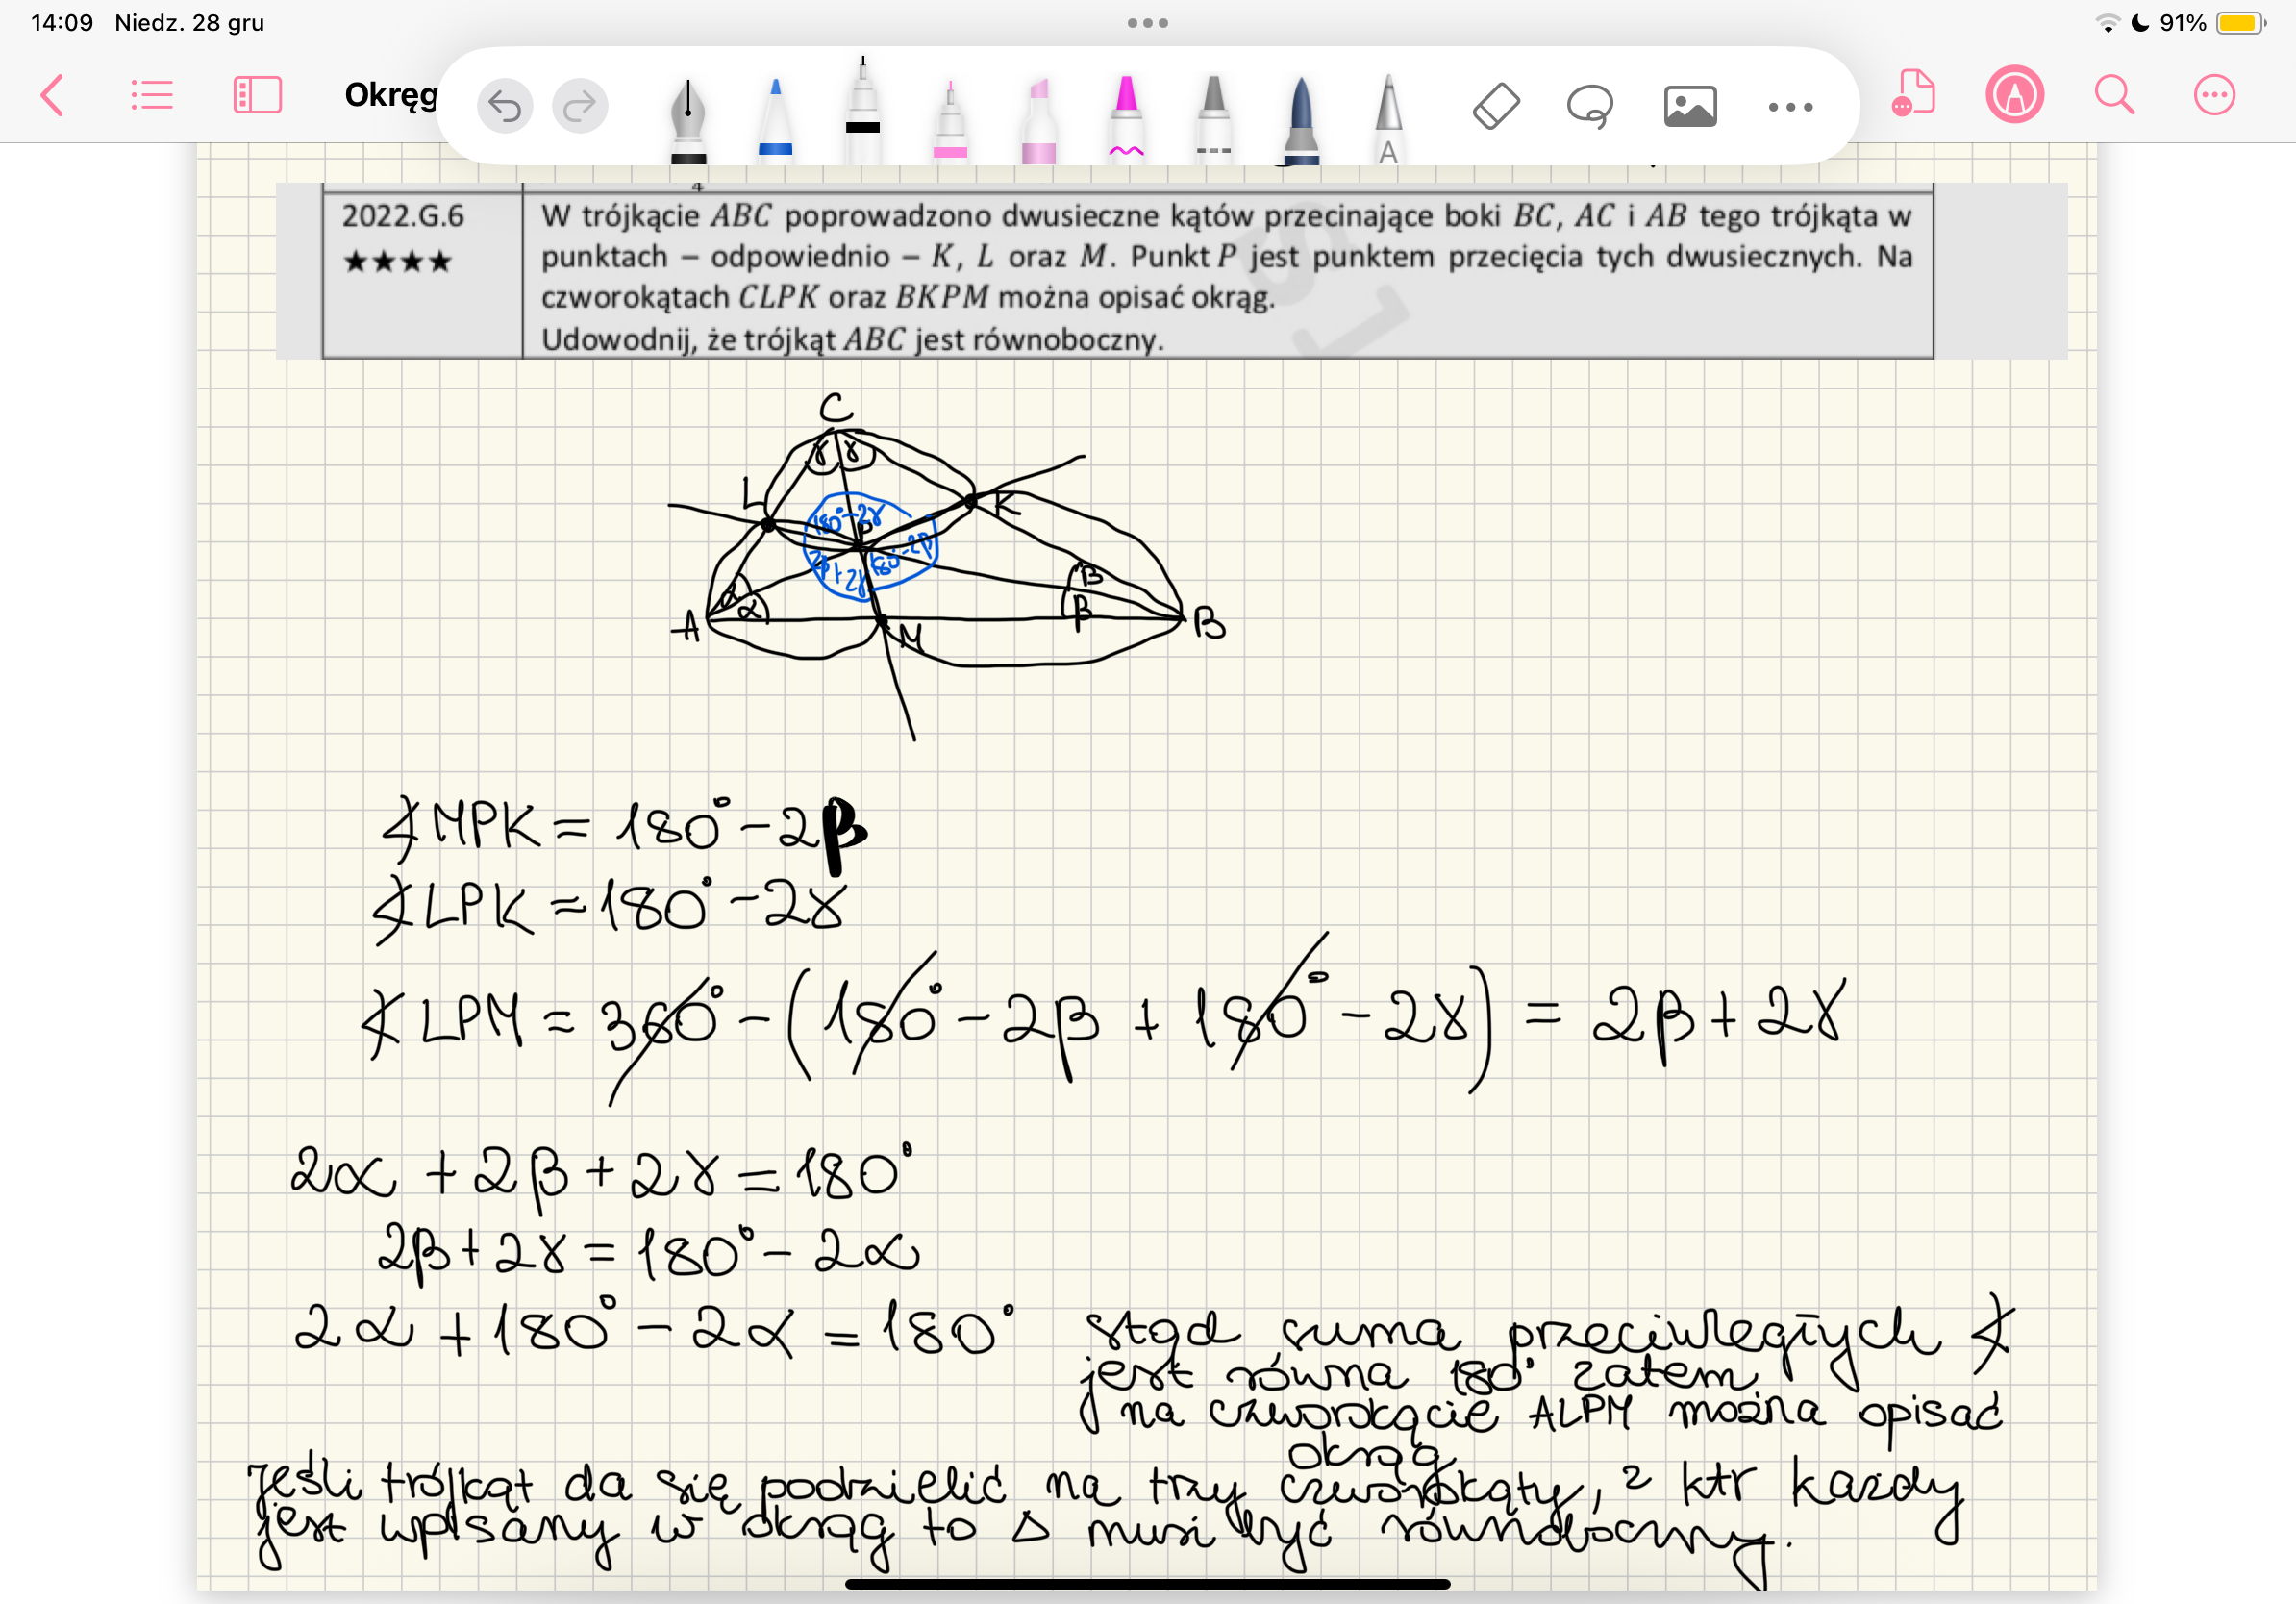 14:09 Niedz. 28 gru
91%
Okręg
A
4
2022.G.6
★★★★
W trójkącie ABC poprowadzono dwusieczne kątów przecinające boki BC, AC i AB tego trójkąta w
punktach – odpowiednio – K, L oraz M. Punkt P jest punktem przecięcia tych dwusiecznych. Na
czworokątach CLPK oraz BKPM można opisać okrąg.
Udowodnij, że trójkąt ABC jest równoboczny.
C
γ γ
L
K
180°-2γ
P
2β+2γ
180°-2β
α
α
β
β
A
M
B
∢MPK = 180° - 2β
∢LPK = 180° - 2γ
∢LPM = 360° - (180° - 2β + 180° - 2γ) = 2β + 2γ
2α + 2β + 2γ = 180°
2β + 2γ = 180° - 2α
2α + 180° - 2α = 180° stąd suma przeciwległych ∢
jest równa 180° zatem
na czworokącie ALPM można opisać
okrąg
Jeśli trójkąt da się podzielić na trzy czworokąty, z ktr każdy
jest wpisany w okrąg to △ musi być równoboczny.